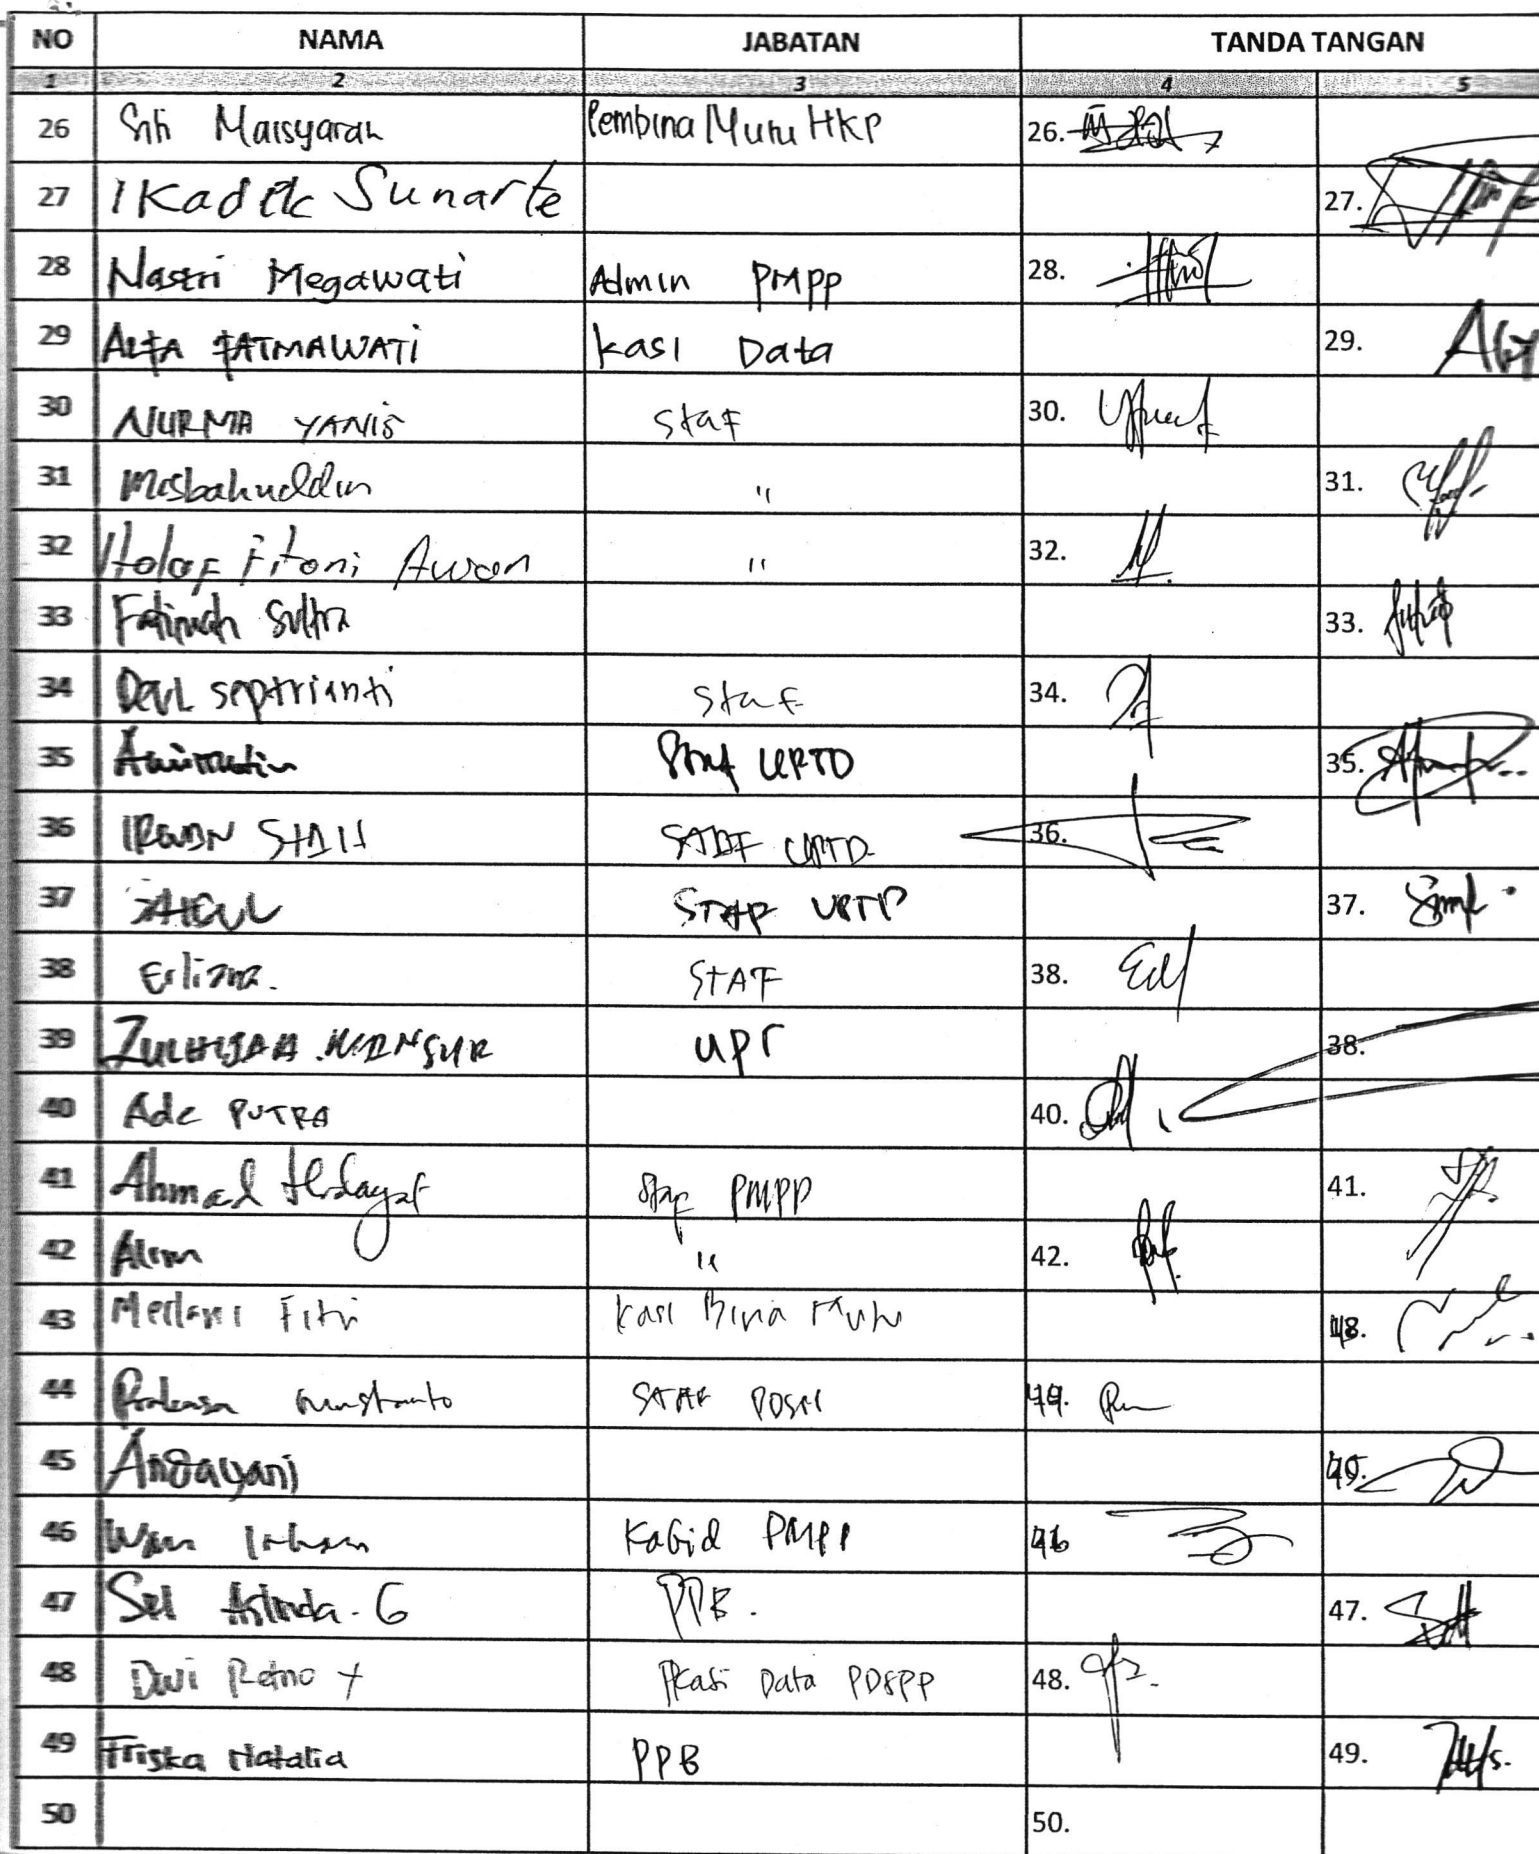 NO NAMA JABATAN TANDA TANGAN
1 2 3 4 5
26 Siti Maisyarah Pembina Mutu HKP 26.
27 I Kadek Sunarte 27.
28 Nastri Megawati Admin PMPP 28.
29 ALFA FATMAWATi kasi Data 29.
30 NURMA YANIS staf 30.
31 Misbahuddin " 31.
32 Fitoni Awan " 32.
33 Fatimah Sultra 33.
34 Devi septrianti staf 34.
35 Staf UPTD 35.
36 STAF UPTD 36.
37 STAF UPTP 37.
38 Erliana. STAF 38.
39 UPT 38.
40 Ade PUTRA 40.
41 Ahmad Hidayat Staf PMPP 41.
42 Alim " 42.
43 Fitri Kasi Bina Mutu
44 STAF
45 Andayani
46 Wan Irham Kabid PMPP
47 Sri G PPB. 47.
48 Dwi Retno Y Data PDSPP 48.
49 Friska Natalia PPB 49.
50 50.